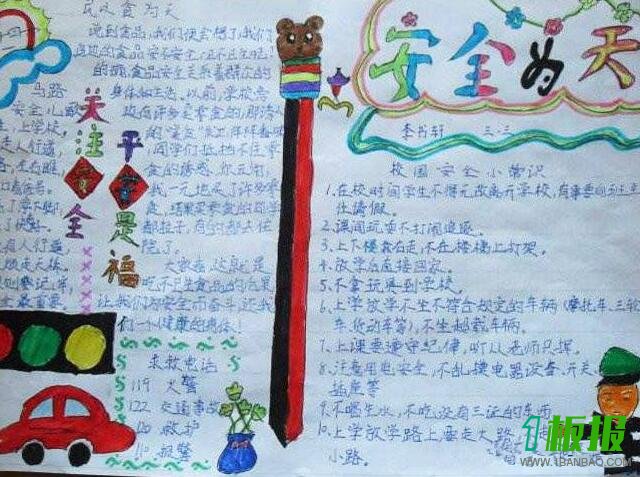 民以食为天
说到食品,我们便会想了,我们
身边的食品安不安全
的确,食品安全关系着群众的
身体和生活。以前,学校旁
有许多
同学们抵挡不住零
食的诱惑,你五角,
我一元地买了许多零
食,结果
拉肚子,有的都去住
院了。
大家看这就是
吃不卫生食品的后果
让我们为安全而奋斗,还我
们一个健康的身体!
马路
安全儿歌
上学校,
走人行道
关注安全
平安是福
求救电话
119 火警
122 交通事故
120 救护
110 报警
安全为天
李书轩 三.三
校园安全小常识
1.在校时间学生不得无故离开学校,有事要向班主
任请假。
2.课间玩耍不打闹追逐。
3.上下楼靠右走,不在楼梯上打架。
4.放学后直接回家。
5.不拿玩具到学校。
6.上学放学不坐不符合规定的车辆(摩托车.三轮
车.货动车等),不坐超载车辆。
7.上课要遵守纪律,听从老师只挥。
8.注意用电安全,不乱摸电器设备、开关
插座等
9.不喝生水,不吃没有三证的东西
10.上学放学路上要走大路,
小路。
1板报
WWW.1BANBAO.COM